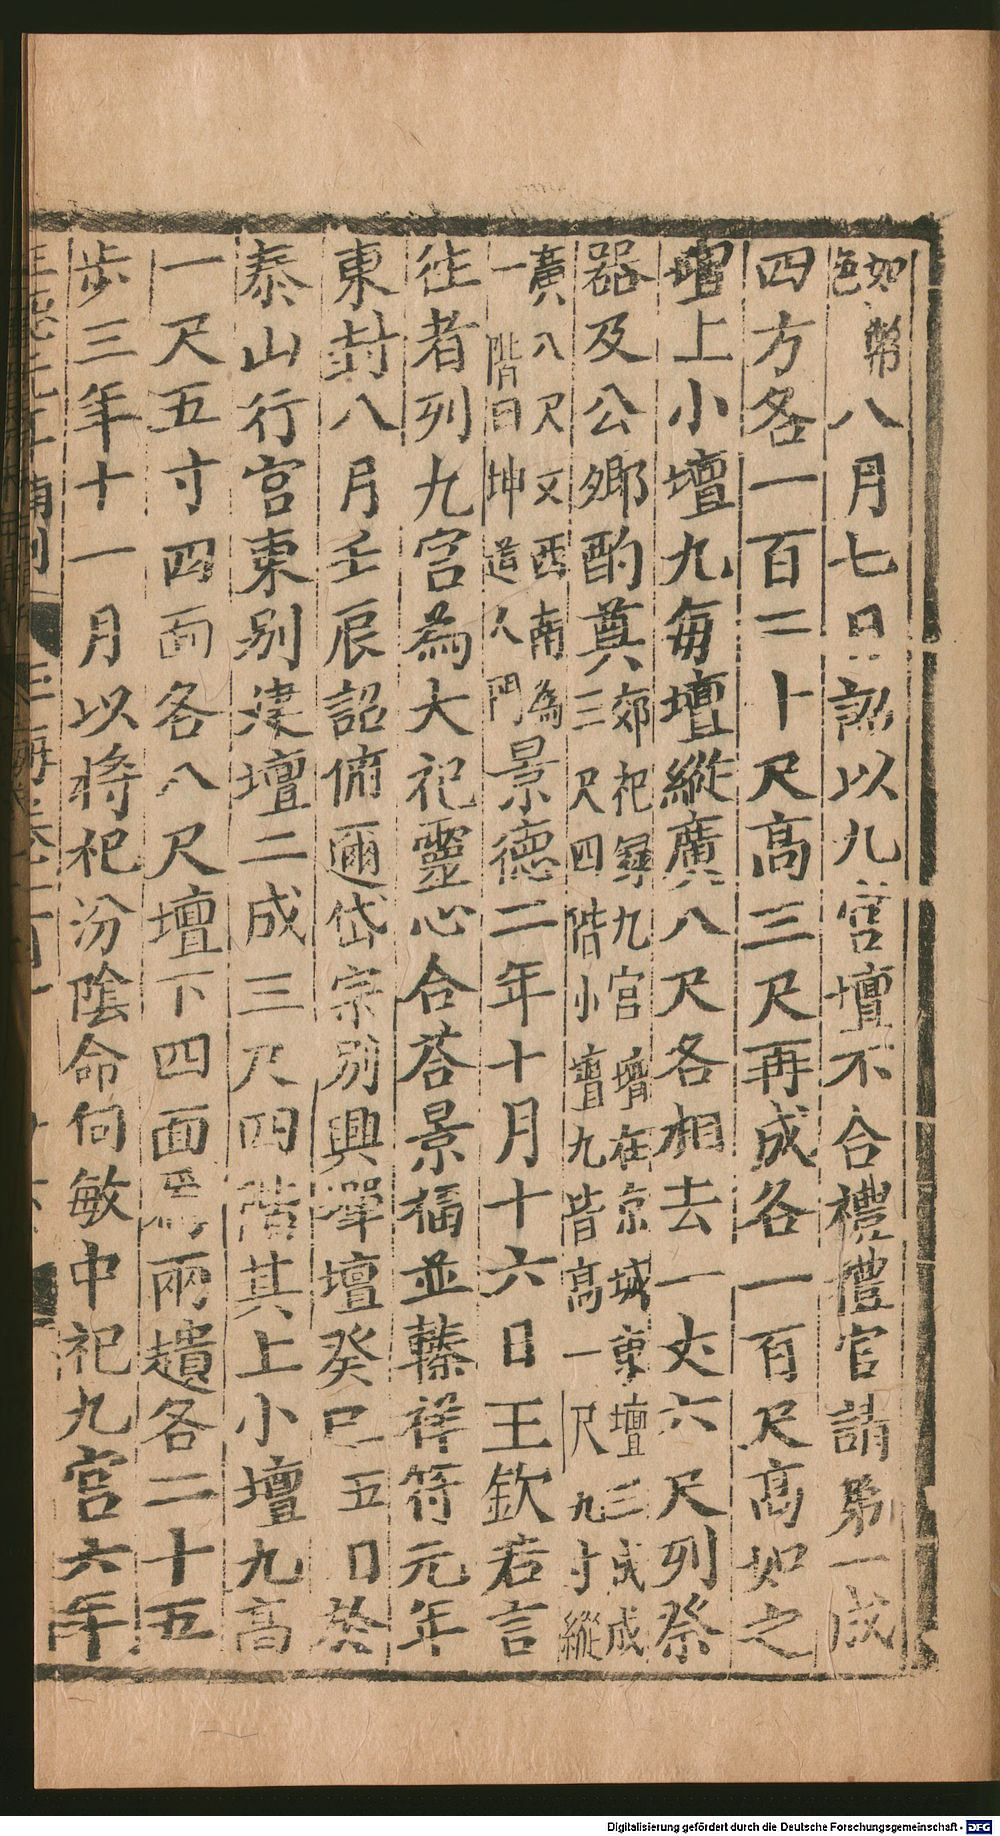 如幣色八月七日詔以九宮壇不合禮禮官請第一成
四方各一百二十尺高三尺再成各一百尺高如之
壇上小壇九每壇縱廣八尺各相去一丈六尺列祭
器及公卿酌奠郊祀錄九宮壇在京城東壇三成成三尺四階小壇九皆高一尺九寸縱
廣八尺又西南為一階曰坤道人門景德二年十月十六日王欽若言
徃者列九宮為大祀靈心合荅景福並臻祥符元年
東封八月壬辰詔脩邇岱宗別興墠壇癸巳五日於
泰山行宮東別建壇二成三尺四階其上小壇九高
一尺五寸四面各八尺壇下四面為兩壝各二十五
步三年十一月以將祀汾陰命何敏中祀九宮六年